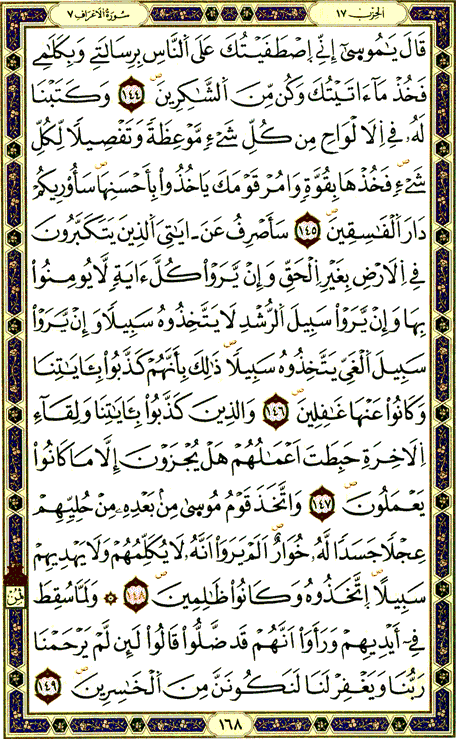 الحِزْب ١٧
سُورَةُ الأَعْرَاف ٧
قَالَ يَٰمُوسَىٰٓ إِنِّے اِ۪صْطَفَيْتُكَ عَلَى اَ۬لنَّاسِ بِرِسَٰلَتِے وَبِكَلَٰمِے
فَخُذْ مَآ ءَاتَيْتُكَ وَكُن مِّنَ اَ۬لشَّٰكِرِينَۖ ١٤٤ وَكَتَبْنَا
لَهُۥ فِے اِ۬لَالْوَاحِ مِن كُلِّ شَےْءٖ مَّوْعِظَةٗ وَتَفْصِيلاٗ لِّكُلِّ
شَےْءٖۖ فَخُذْهَا بِقُوَّةٖ وَامُرْ قَوْمَكَ يَاخُذُواْ بِأَحْسَنِهَاۖ سَأُوْرِيكُمْ
دَارَ اَ۬لْفَٰسِقِينَۖ ١٤٥ سَأَصْرِفُ عَنَ اٰيَٰتِيَ اَ۬لذِينَ يَتَكَبَّرُونَ
فِے اِ۬لَارْضِ بِغَيْرِ اِ۬لْحَقِّ وَإِنْ يَّرَوْاْ كُلَّ ءَايَةٖ لَّا يُومِنُواْ
بِهَا وَإِنْ يَّرَوْاْ سَبِيلَ اَ۬لرُّشْدِ لَا يَتَّخِذُوهُ سَبِيلاٗ وَإِنْ يَّرَوْاْ
سَبِيلَ اَ۬لْغَيِّ يَتَّخِذُوهُ سَبِيلاٗۖ ذَٰلِكَ بِأَنَّهُمْ كَذَّبُواْ بِـَٔايَٰتِنَا
وَكَانُواْ عَنْهَا غَٰفِلِينَۖ ١٤٦ وَالذِينَ كَذَّبُواْ بِـَٔايَٰتِنَا وَلِقَآءِ
اِ۬لَاخِرَةِ حَبِطَتَ اَعْمَٰلُهُمْ هَلْ يُجْزَوْنَ إِلَّا مَا كَانُواْ
يَعْمَلُونَۖ ١٤٧ وَاتَّخَذَ قَوْمُ مُوسَىٰ مِنۢ بَعْدِهِۦ مِنْ حُلِيِّهِمْ
عِجْلاٗ جَسَداٗ لَّهُۥ خُوَارٌۖ اَلَمْ يَرَوَاْ اَنَّهُۥ لَا يُكَلِّمُهُمْ وَلَا يَهْدِيهِمْ
سَبِيلاًۖ اِ۪تَّخَذُوهُ وَكَانُواْ ظَٰلِمِينَۖ ١٤٨ وَلَمَّا سُقِطَ
فِےٓ أَيْدِيهِمْ وَرَأَوَاْ اَنَّهُمْ قَد ضَّلُّواْ قَالُواْ لَئِن لَّمْ يَرْحَمْنَا
رَبُّنَا وَيَغْفِرْ لَنَا لَنَكُونَنَّ مِنَ اَ۬لْخَٰسِرِينَۖ ١٤٩
ثمن
١٦٨